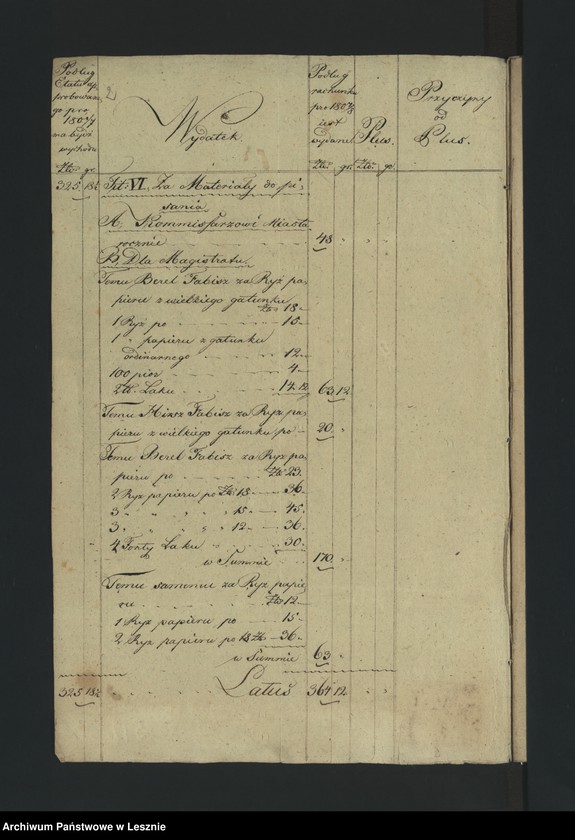 Podług
Etatu ap-
probowane-
go pro
1806/7
ma bydź
wychodu
Złł. gr.
2
Wydatek.
Podług
rachunku
pro 1806/7
jest
wydane.
Złł. gr.
Plus.
Złł. gr.
Przyczyny
od
Plus.
325 18½ Tit: VI. Za Materiały do pi-
sania
A. Kommissarzowi Miasta
rocznie 48 "
B. Dla Magistratu.
Temu Berel Fabisz za Ryż pa-
pieru z wielkiego gatunku
Złł. 18 -
1 Ryż po - 15 -
1 " papieru z gatunku
ordinarnego - 12 -
100 piór - 4 -
2 tt. Laku - 14. 12 63 12
Temu Hirsz Fabisz za Ryz pa-
pieru z wielkiego gatunku po - 20 "
Temu Berel Fabisz za Ryz pa-
pieru po Złł. 23.
2 Ryz papieru po Złł. 18 - 36 -
3 " " " 15 - 45.
3 " " " 12 - 36.
4 Fonty Laku - 30 -
w Summie 170 "
Temu samemu za Ryz papie-
ru Złł. 12 -
1 Ryz papieru po - 15 -
2 Ryz papieru po 18 Złł. - 36 -
w Summie 63 "
325 18½ Latus 364 12 " "
Archiwum Państwowe w Lesznie